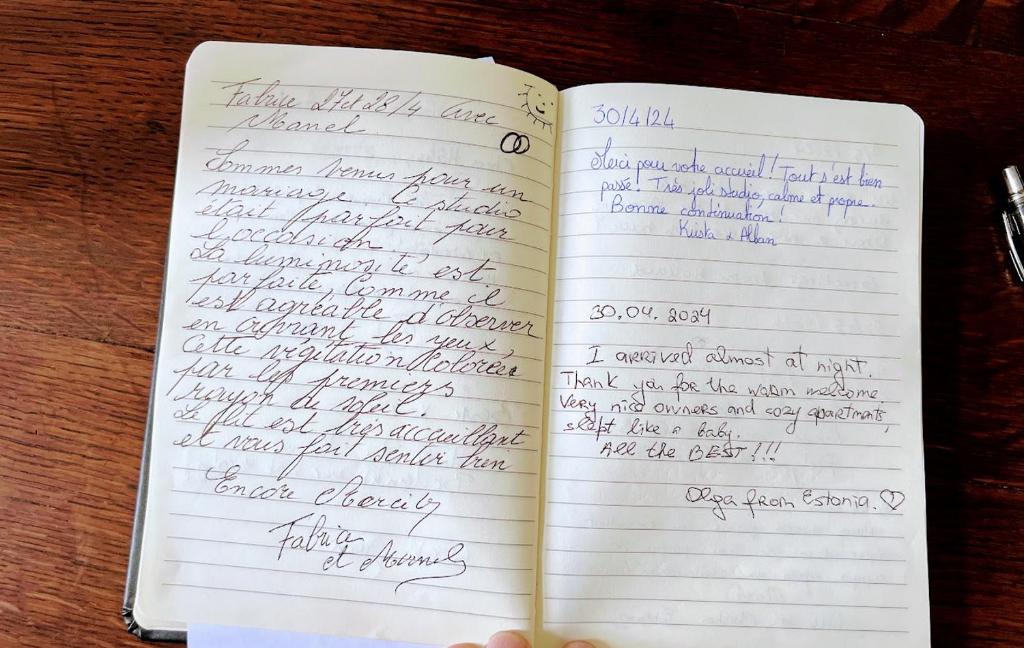 Fabrice 27et 28/4 avec
Manel
Sommes venus pour un
mariage. Le studio
était parfait pour
l'occasion
La luminosité est
parfaite, Comme il
est agréable d'observer
en ouvrant les yeux,
Cette végétation Colorée
par les premiers
rayon de soleil.
Le lit est très accueillant
et vous fait sentir bien
Encore
Fabrice
et Manel
30/4/24
Merci pour votre accueil! Tout s'est bien
passé. Très joli studio, calme et propre.
Bonne continuation!
& Alban
30.04.2024
I ARRIVED almost at night.
Thank you for the warm welcome.
Very nice owners and cozy apartments,
slept like a baby.
All the BEST!!!
Olga from Estonia. ♡